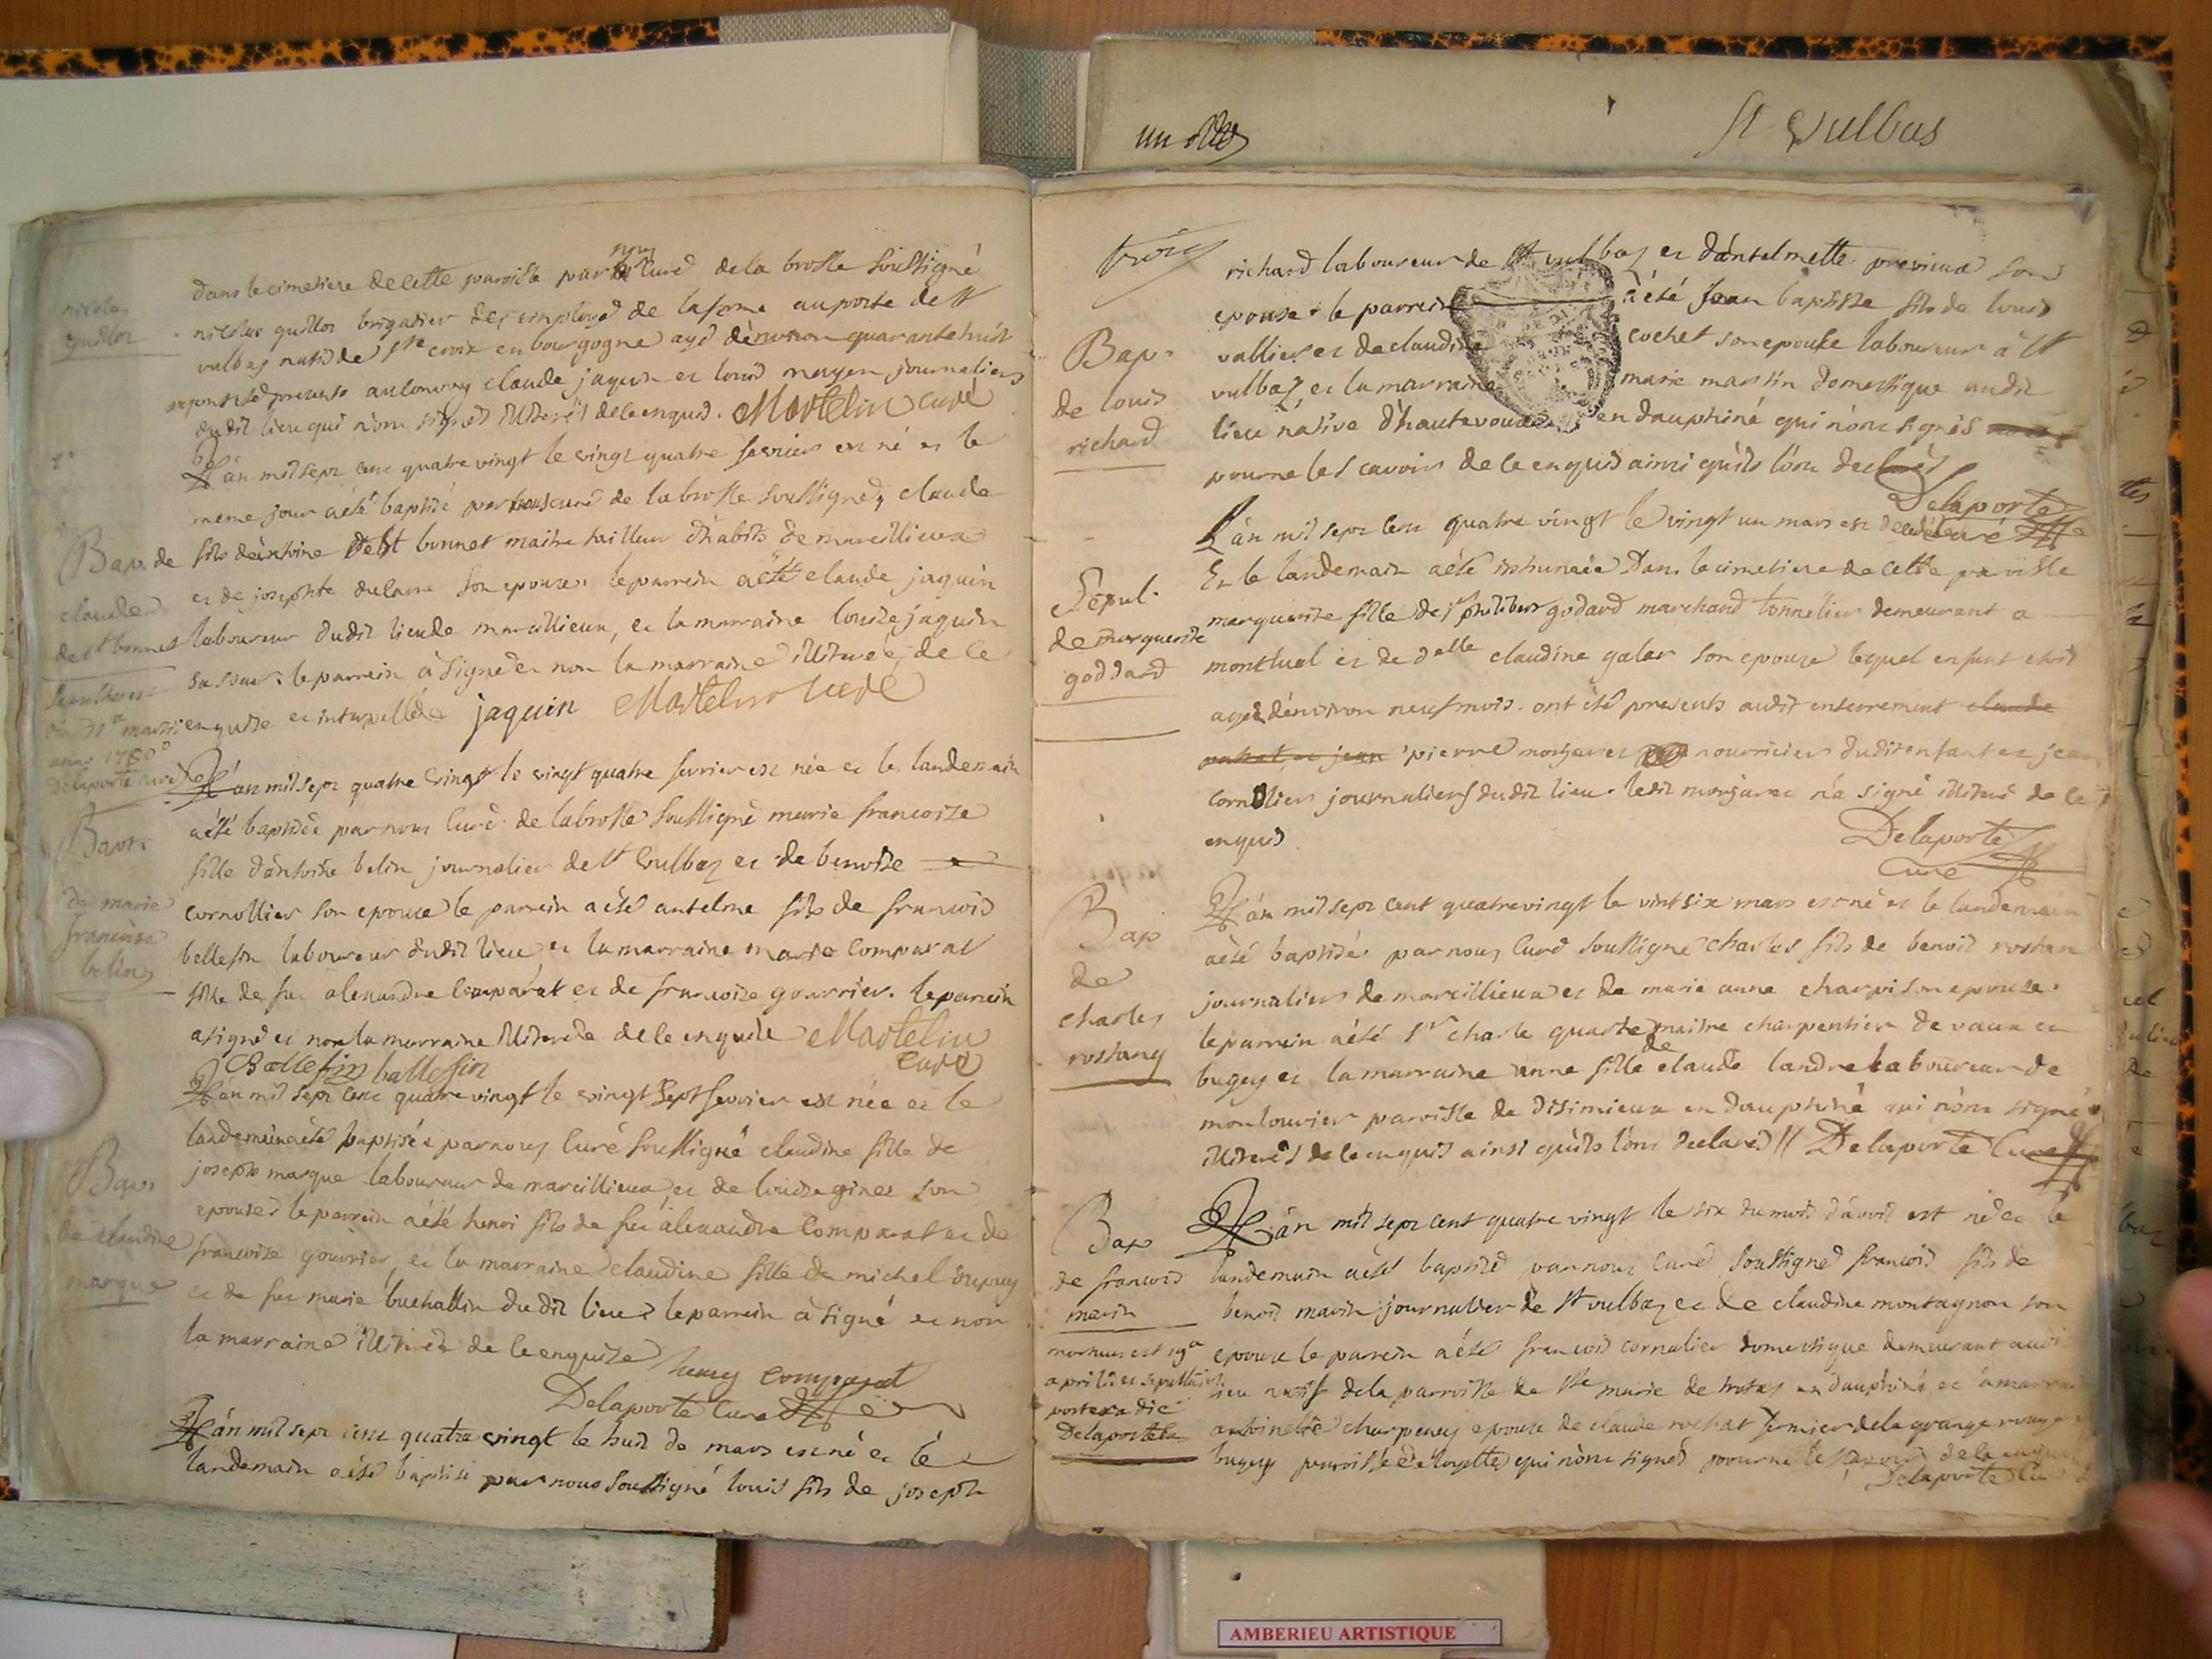 St Vulbas
nicolas
guillot
dans le cimetiere de cette paroisse par nous Curé de la brosse soussigné
nicolas guillot brigadier des employés de la ferme au poste de st
vulbas natif de ste croix en bourgogne agé d'environ quarante huit
ans presents au convoy claude jaquin et louis mayen journaliers
dudit lieu qui n'ont signés illiterés de ce enquis. Martelin curé
Bap. de
claude
de st bonnet
L'an mil sept cent quatre vingt le vingt quatre fevrier est né et le
meme jour a été baptisé par nous curé de la brosse soussigné, claude
fils de antoine de st bonnet maitre tailleur d'habits de marcillieux
et de josephte son epouse. le parrein a été claude jaquin
laboureur dudit lieu de marcillieux, et la marraine louise jaquin
sa soeur. le parrein a signé et non la marraine illiterée, de ce
enquise et interpellée jaquin Martelin curé
die 31a martii
anni 1780
Delaporte curé
Bapt.
de marie
francoise
belin
L'an mil sept quatre vingt le vingt quatre fevrier est née et le landemain
a été baptisée par nous Curé de la brosse soussigné marie francoise
fille d'antoine belin journalier de st Vulbas et de benoite
cornollier son epouse le parrein a été antelme fils de francois
ballefin laboureur dudit lieu et la marraine marie Comparat
fille de feu alexandre Comparat et de francoise gourrier. le parrein
a signé et non la marraine illiterée de ce enquise Martelin
Ballefin ballefin curé
Bap.
de claudine
marque
L'an mil sept cent quatre vingt le vingt sept fevrier est née et le
landemain a été baptisée par nous Curé soussigné claudine fille de
joseph marque laboureur de marcillieux, et de louise ginet son
epouse. le parrein a été henri fils de feu alexandre Comparat et de
francoise gourrier, et la marraine claudine fille de michel dupuy
et de feu marie buchallin dudit lieu. le parrein a signé et non
la marraine illiterée de ce enquise
henry comparat
Delaporte Curé
L'an mil sept cent quatre vingt le huit de mars est né et le
landemain a été baptisé par nous soussigné louis fils de joseph
trois
Bap.
de louis
richard
richard laboureur de st vulbas et d'antelmette previeux son
epouse. le parrein a été Jean baptiste fils de louis
vallier et de claudine cochet son epouse laboureur à st
vulbas, et la marraine marie martin domestique audit
lieu native d'hautevoux en dauphiné qui n'ont signés
pour ne les savoirs de ce enquis ainsi qu'ils l'ont declaré
Delaporte
curé
Sépul.
de marguerite
goddard
L'an mil sept cent quatre vingt le vingt un mars est decedée
Et le landemain a été inhumée Dans le cimetiere de cette paroisse
marguerite fille de sr philibert godard marchand tonnelier demeurant a
montluel et de delle claudine galer son epouse lequel enfant etoit
agée d'environ neuf mois. ont été presents audit enterrement claude
et jean pierre morjaret nourricier dudit enfant et jean
cornolier journaliers dudit lieu. ledit morjaret n'a signé illiteré de ce
enquis
Delaporte
Curé
Bap
de
charles
rostang
L'an mil sept cent quatre vingt le vint six mars est né et le landemain
a été baptisé par nous Curé soussigné Charles fils de benoit rostan
journalier de marcillieux et de marie anne charpi son epouse.
le parrein a été sr charle quarte, maitre charpentier de vaux en
bugey et la marraine anne fille de claude landre laboureur de
montouvier paroisse de disimieux en dauphiné qui n'ont signé
illiterés de ce enquis ainsi qu'ils l'ont declarés // Delaporte Curé
Bap
de francois
marin
mortuus est 19a
aprilis et sepultus
postera die
Delaporte
L'an mil sept cent quatre vingt le six du mois d'avril est né et le
landemain a été baptisé par nous Curé soussigné francois fils de
benoit marin journalier de st vulbas et de claudine montagnon son
epouse le parrein a été francois cornolier domestique demeurant audit
lieu natif de la parroisse de ste marie de en dauphiné et la marraine
antoinette charpenay epouse de claude rochat fermier de la grange rouge
bugey paroisse de loyettes, qui n'ont signés pour ne le savoir de ce enquis
Delaporte Curé
AMBERIEU ARTISTIQUE